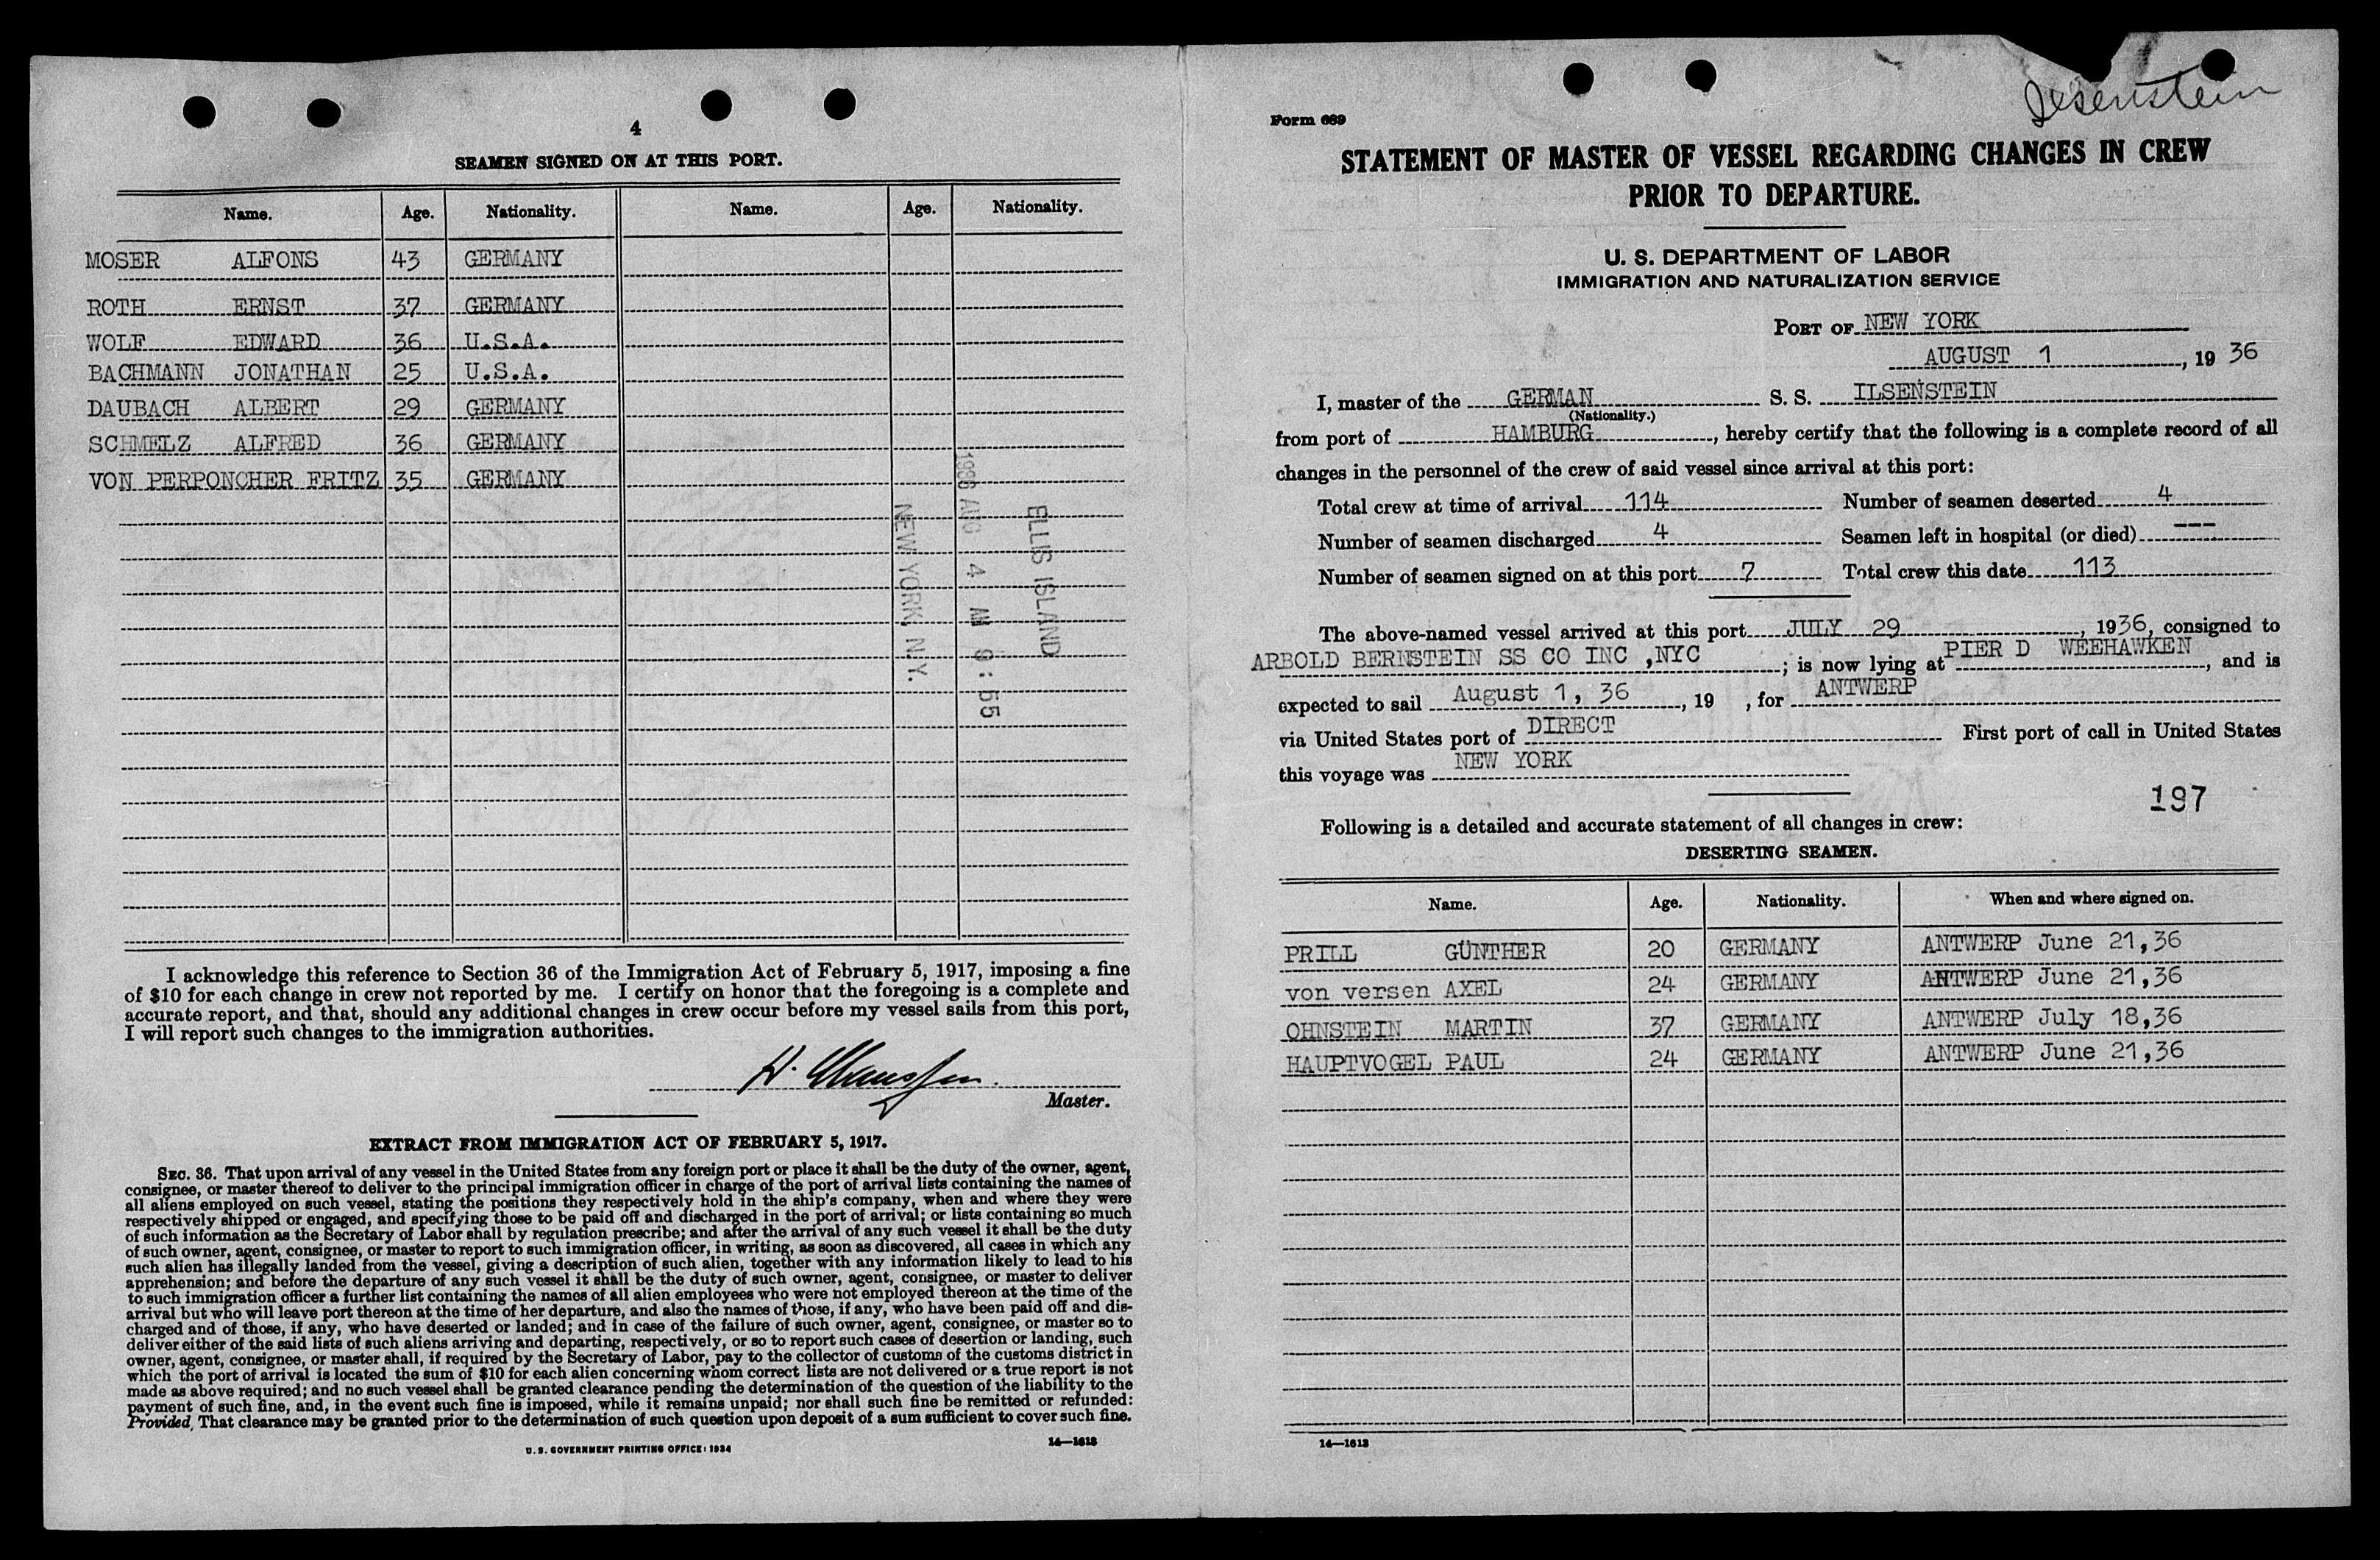 4
SEAMEN SIGNED ON AT THIS PORT.
Name. Age. Nationality. Name. Age. Nationality.
MOSER ALFONS 43 GERMANY
ROTH ERNST 37 GERMANY
WOLF EDWARD 36 U.S.A.
BACHMANN JONATHAN 25 U.S.A.
DAUBACH ALBERT 29 GERMANY
SCHMELZ ALFRED 36 GERMANY
VON PERPONCHER FRITZ 35 GERMANY
ELLIS ISLAND
1936 AUG 4 AM 9:55
NEW YORK, N.Y.
I acknowledge this reference to Section 36 of the Immigration Act of February 5, 1917, imposing a fine
of $10 for each change in crew not reported by me. I certify on honor that the foregoing is a complete and
accurate report, and that, should any additional changes in crew occur before my vessel sails from this port,
I will report such changes to the immigration authorities.
Master.
EXTRACT FROM IMMIGRATION ACT OF FEBRUARY 5, 1917.
SEC. 36. That upon arrival of any vessel in the United States from any foreign port or place it shall be the duty of the owner, agent,
consignee, or master thereof to deliver to the principal immigration officer in charge of the port of arrival lists containing the names of
all aliens employed on such vessel, stating the positions they respectively hold in the ship's company, when and where they were
respectively shipped or engaged, and specifying those to be paid off and discharged in the port of arrival; or lists containing so much
of such information as the Secretary of Labor shall by regulation prescribe; and after the arrival of any such vessel it shall be the duty
of such owner, agent, consignee, or master to report to such immigration officer, in writing, as soon as discovered, all cases in which any
such alien has illegally landed from the vessel, giving a description of such alien, together with any information likely to lead to his
apprehension; and before the departure of any such vessel it shall be the duty of such owner, agent, consignee, or master to deliver
to such immigration officer a further list containing the names of all alien employees who were not employed thereon at the time of the
arrival but who will leave port thereon at the time of her departure, and also the names of those, if any, who have been paid off and dis-
charged and of those, if any, who have deserted or landed; and in case of the failure of such owner, agent, consignee, or master so to
deliver either of the said lists of such aliens arriving and departing, respectively, or so to report such cases of desertion or landing, such
owner, agent, consignee, or master shall, if required by the Secretary of Labor, pay to the collector of customs of the customs district in
which the port of arrival is located the sum of $10 for each alien concerning whom correct lists are not delivered or a true report is not
made as above required; and no such vessel shall be granted clearance pending the determination of the question of the liability to the
payment of such fine, and, in the event such fine is imposed, while it remains unpaid; nor shall such fine be remitted or refunded:
Provided, That clearance may be granted prior to the determination of such question upon deposit of a sum sufficient to cover such fine.
U.S. GOVERNMENT PRINTING OFFICE: 1934 14—1613
Ilsenstein
Form 689
STATEMENT OF MASTER OF VESSEL REGARDING CHANGES IN CREW
PRIOR TO DEPARTURE.
U. S. DEPARTMENT OF LABOR
IMMIGRATION AND NATURALIZATION SERVICE
PORT OF NEW YORK
AUGUST 1, 19 36
I, master of the GERMAN S. S. ILSENSTEIN
(Nationality.)
from port of HAMBURG, hereby certify that the following is a complete record of all
changes in the personnel of the crew of said vessel since arrival at this port:
Total crew at time of arrival 114 Number of seamen deserted 4
Number of seamen discharged 4 Seamen left in hospital (or died) ---
Number of seamen signed on at this port 7 Total crew this date 113
The above-named vessel arrived at this port JULY 29, 1936, consigned to
ARBOLD BERNSTEIN SS CO INC ,NYC; is now lying at PIER D WEEHAWKEN, and is
expected to sail August 1, 36, 19 , for ANTWERP
via United States port of DIRECT First port of call in United States
this voyage was NEW YORK
197
Following is a detailed and accurate statement of all changes in crew:
DESERTING SEAMEN.
Name. Age. Nationality. When and where signed on.
PRILL GÜNTHER 20 GERMANY ANTWERP June 21,36
von versen AXEL 24 GERMANY ANTWERP June 21,36
OHNSTEIN MARTIN 37 GERMANY ANTWERP July 18,36
HAUPTVOGEL PAUL 24 GERMANY ANTWERP June 21,36
14—1613